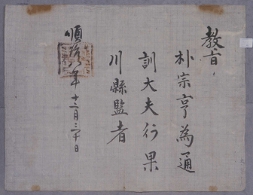 教旨
朴宗亨為通
訓大夫行果
川縣監者
順治八年十二月二十日